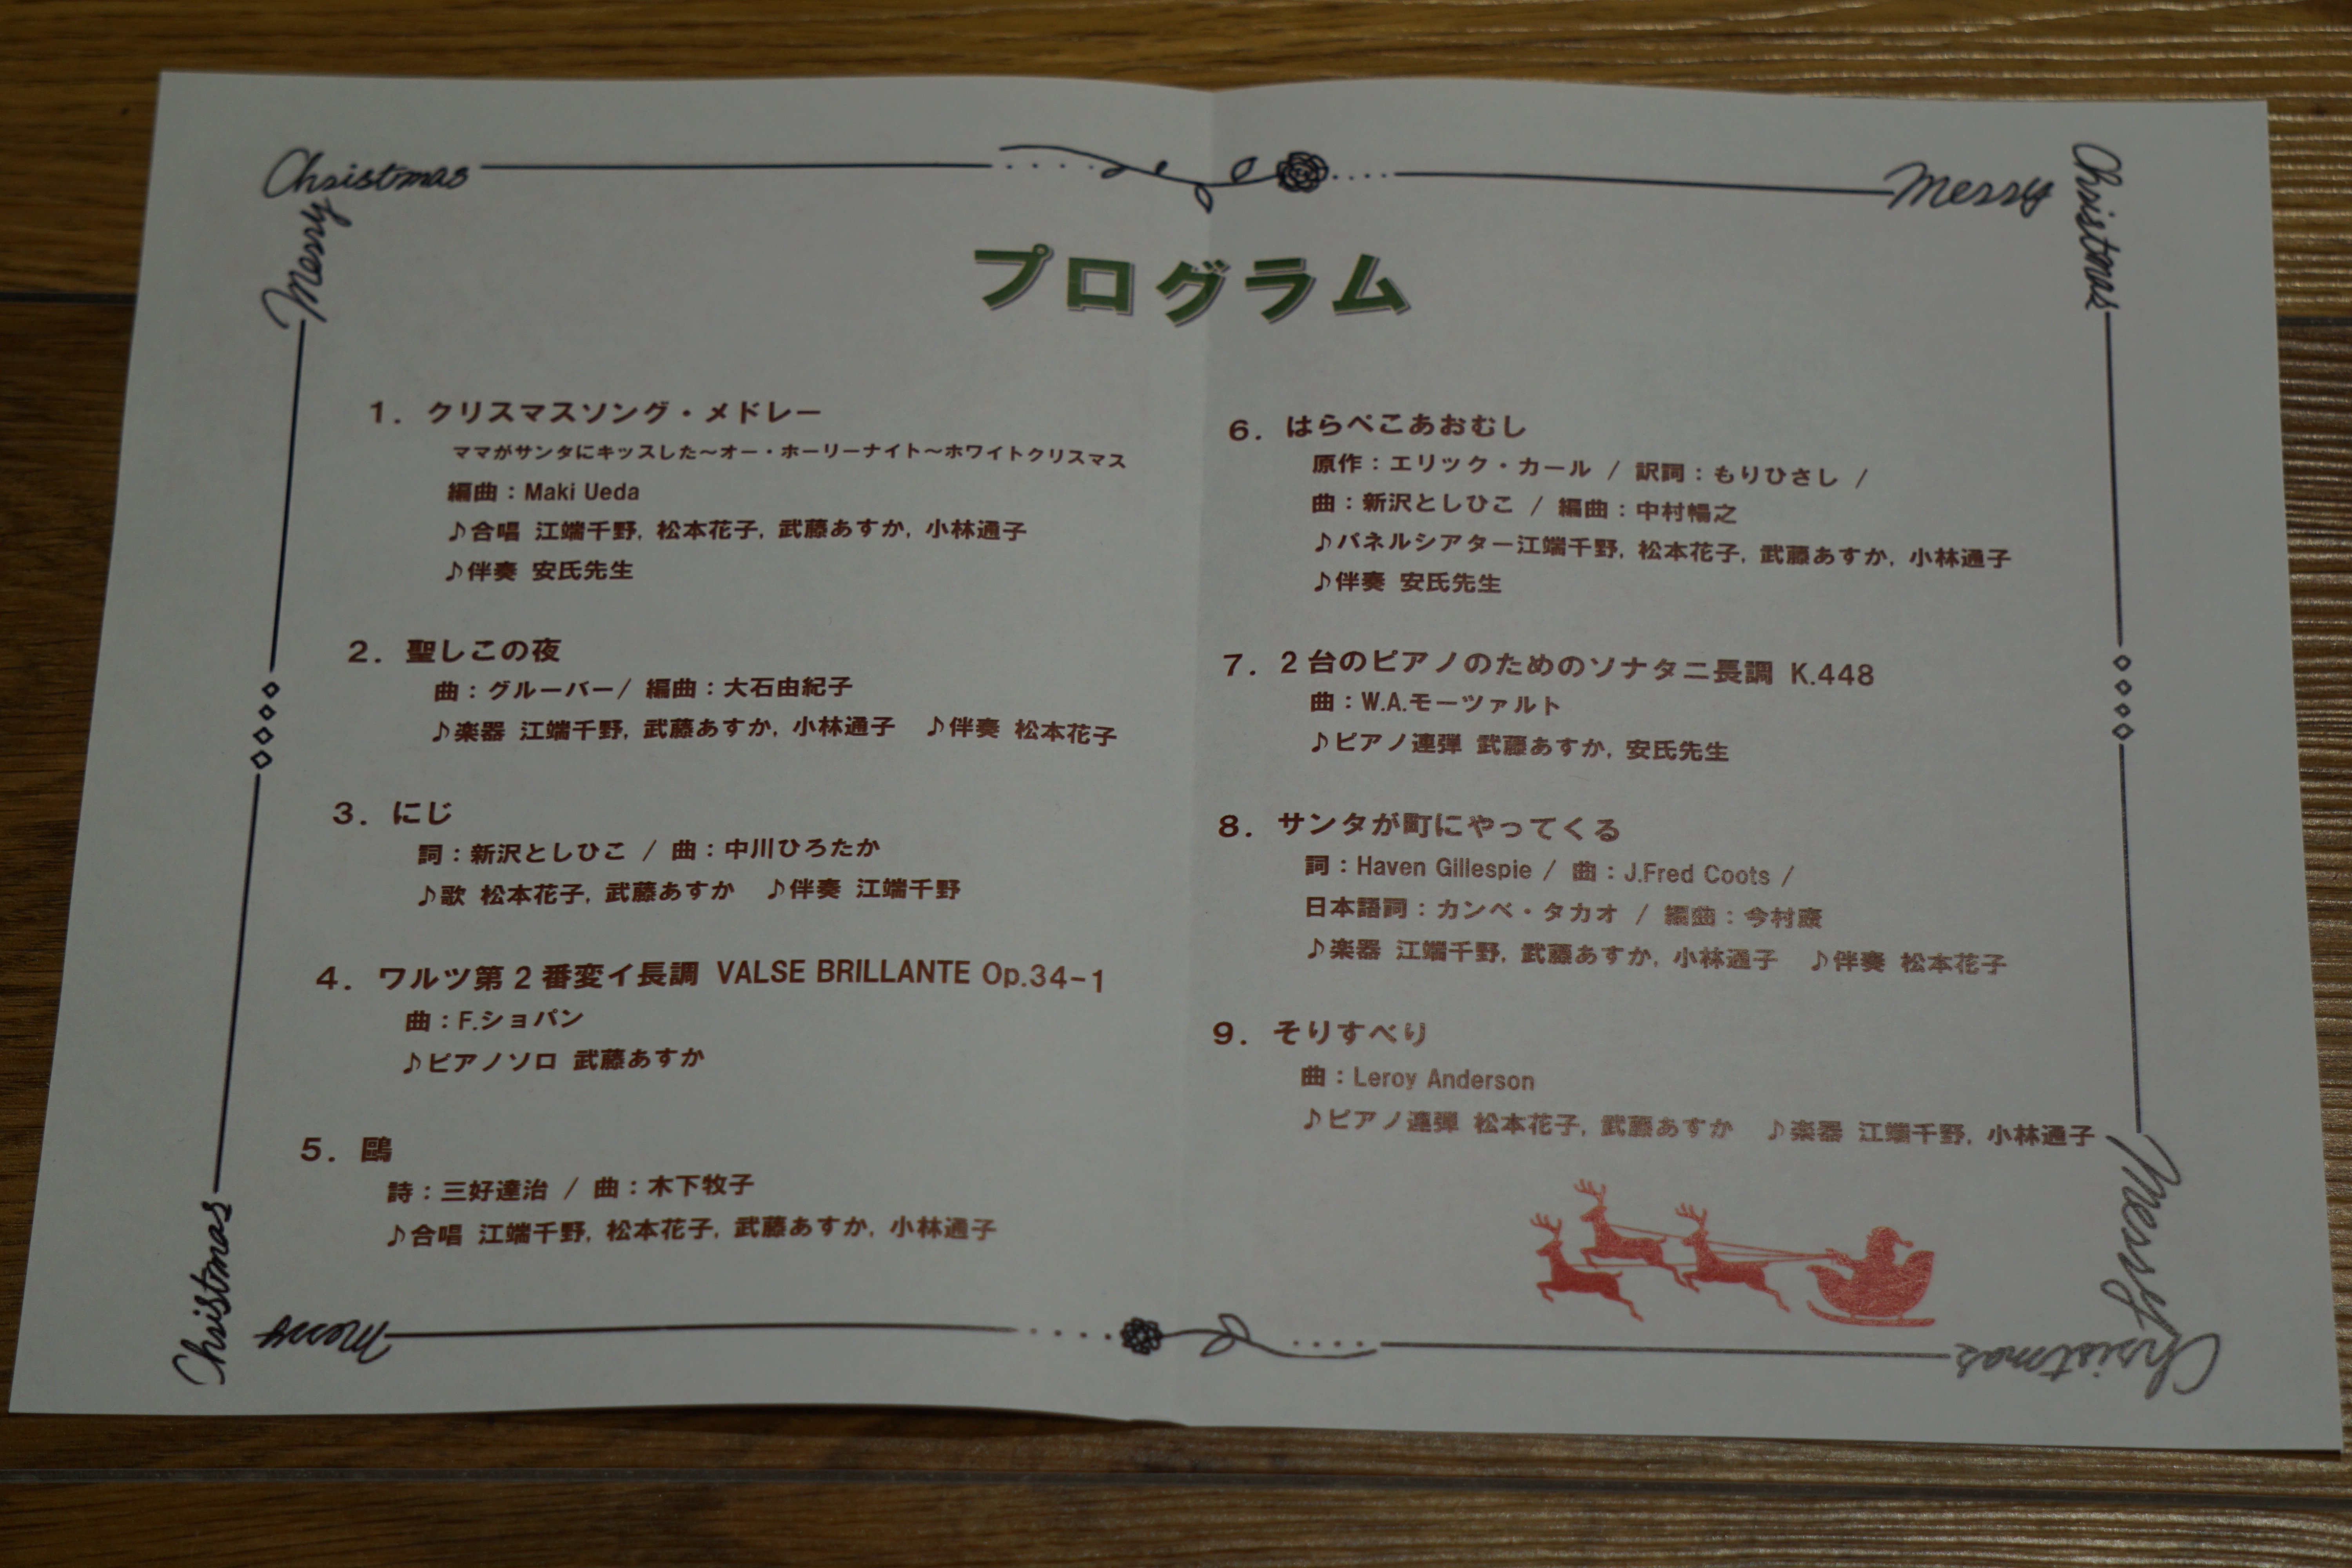 Christmas
Merry
Merry
Christmas
プログラム
1. クリスマスソング・メドレー
ママがサンタにキッスした～オー・ホーリーナイト～ホワイトクリスマス
編曲：Maki Ueda
♪合唱 江端千野, 松本花子, 武藤あすか, 小林通子
♪伴奏 安氏先生
2. 聖しこの夜
曲：グルーバー/ 編曲：大石由紀子
♪楽器 江端千野, 武藤あすか, 小林通子 ♪伴奏 松本花子
3. にじ
詞：新沢としひこ / 曲：中川ひろたか
♪歌 松本花子, 武藤あすか ♪伴奏 江端千野
4. ワルツ第2番変イ長調 VALSE BRILLANTE Op.34-1
曲：F.ショパン
♪ピアノソロ 武藤あすか
5. 鷗
詩：三好達治 / 曲：木下牧子
♪合唱 江端千野, 松本花子, 武藤あすか, 小林通子
6. はらぺこあおむし
原作：エリック・カール / 訳詞：もりひさし /
曲：新沢としひこ / 編曲：中村暢之
♪パネルシアター江端千野, 松本花子, 武藤あすか, 小林通子
♪伴奏 安氏先生
7. 2台のピアノのためのソナタニ長調 K.448
曲：W.A.モーツァルト
♪ピアノ連弾 武藤あすか, 安氏先生
8. サンタが町にやってくる
詞：Haven Gillespie / 曲：J.Fred Coots /
日本語詞：カンベ・タカオ / 編曲：今村康
♪楽器 江端千野, 武藤あすか, 小林通子 ♪伴奏 松本花子
9. そりすべり
曲：Leroy Anderson
♪ピアノ連弾 松本花子, 武藤あすか ♪楽器 江端千野, 小林通子
Christmas
Merry
Merry
Christmas